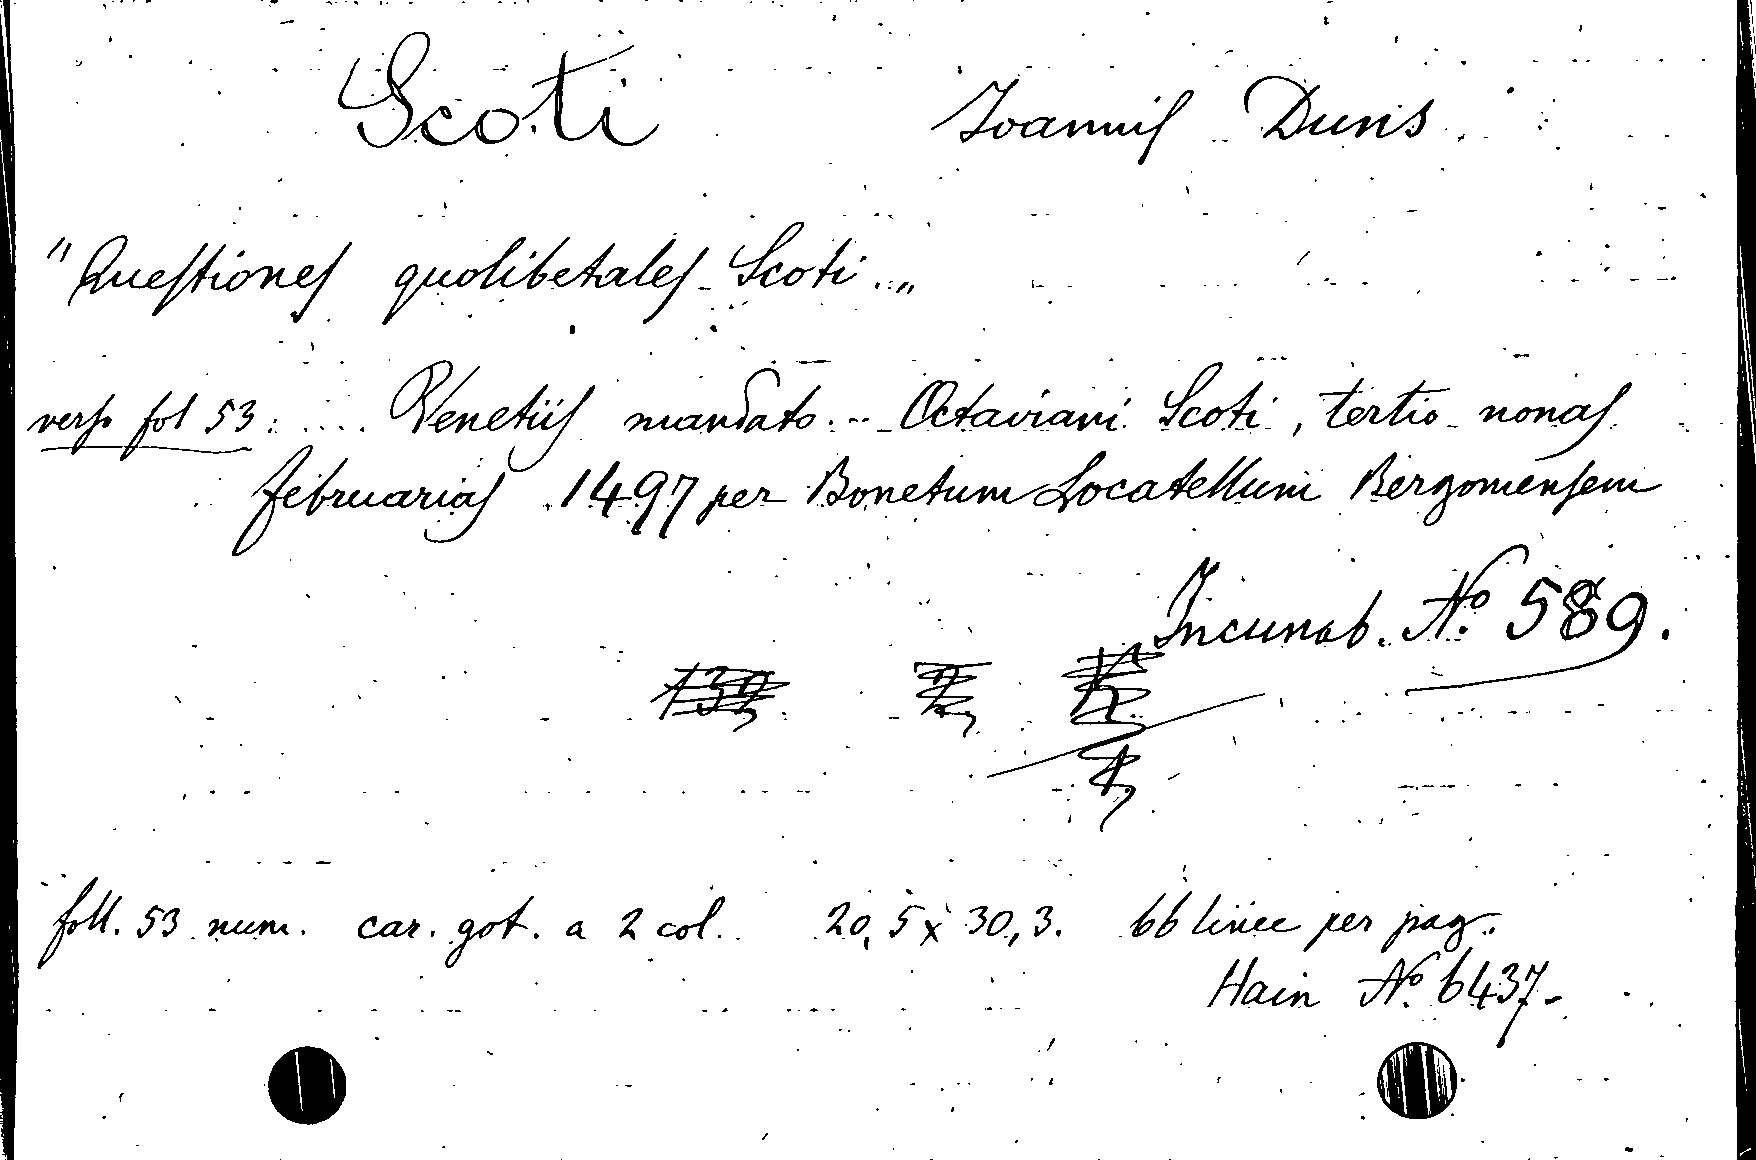 Scoti Joannis Duns
"Questiones quolibetales Scoti..„
verso fol 53: .... Venetiis mandato... Octaviani Scoti, tertio nonas
februarias 1497 per Bonetum Locatellum Bergomensem
Incunab. No. 589.
foll. 53 num. car. got. a 2 col. 20,5 x 30,3. 66 linee per pag.
Hain No. 6437.